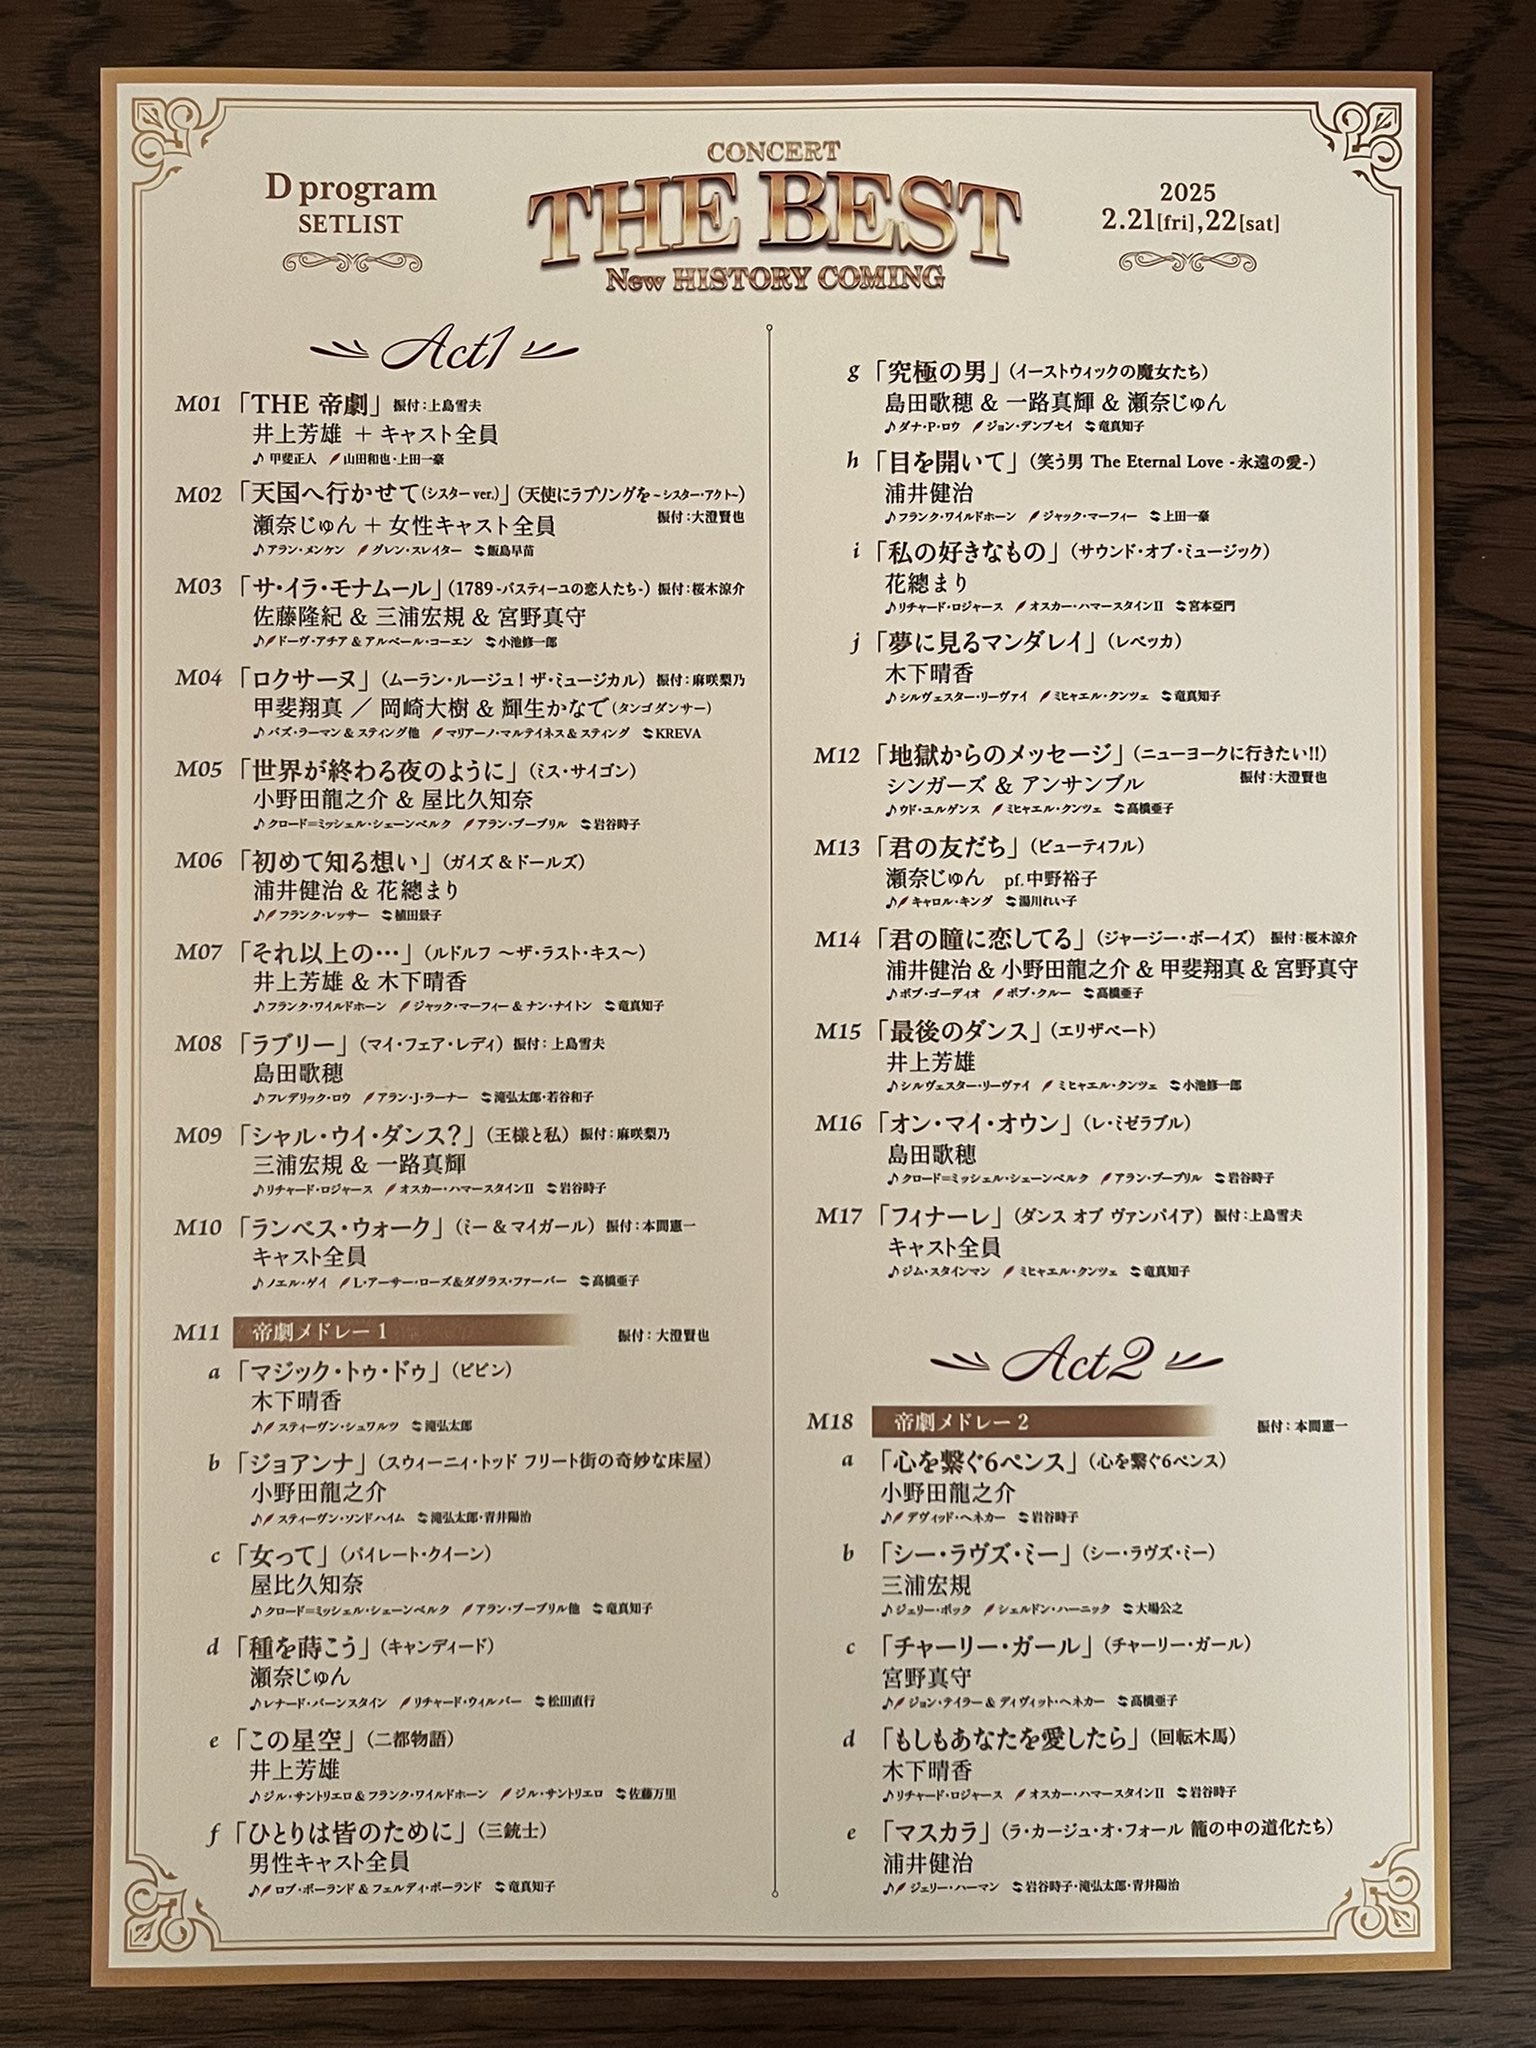 D program
SETLIST
CONCERT
THE BEST
New HISTORY COMING
2025
2.21[fri],22[sat]
Act1
M01 「THE 帝劇」 振付:上島雪夫
井上芳雄 + キャスト全員
♪ 甲斐正人 山田和也・上田一豪
M02 「天国へ行かせて(シスター ver.)」(天使にラブソングを~シスター・アクト~)
瀬奈じゅん + 女性キャスト全員 振付:大澄賢也
♪アラン・メンケン グレン・スレイター 飯島早苗
M03 「サ・イラ・モナムール」(1789 -バスティーユの恋人たち-) 振付:桜木涼介
佐藤隆紀 & 三浦宏規 & 宮野真守
♪ドーヴ・アチア & アルベール・コーエン 小池修一郎
M04 「ロクサーヌ」(ムーラン・ルージュ!ザ・ミュージカル) 振付:麻咲梨乃
甲斐翔真 / 岡崎大樹 & 輝生かなで(タンゴダンサー)
♪バズ・ラーマン & スティング他 マリアーノ・マルテイネス& スティング KREVA
M05 「世界が終わる夜のように」(ミス・サイゴン)
小野田龍之介 & 屋比久知奈
♪クロード=ミッシェル・シェーンベルク アラン・ブーブリル 岩谷時子
M06 「初めて知る想い」(ガイズ &ドールズ)
浦井健治 & 花總まり
♪フランク・レッサー 植田景子
M07 「それ以上の…」(ルドルフ ~ザ・ラスト・キス~)
井上芳雄 & 木下晴香
♪フランク・ワイルドホーン ジャック・マーフィー & ナン・ナイトン 竜真知子
M08 「ラブリー」(マイ・フェア・レディ) 振付:上島雪夫
島田歌穂
♪フレデリック・ロウ アラン・J・ラーナー 滝弘太郎・若谷和子
M09 「シャル・ウイ・ダンス?」(王様と私) 振付:麻咲梨乃
三浦宏規 & 一路真輝
♪リチャード・ロジャース オスカー・ハマースタインⅡ 岩谷時子
M10 「ランベス・ウォーク」(ミー & マイガール) 振付:本間憲一
キャスト全員
♪ノエル・ゲイ L・アーサー・ローズ&ダグラス・ファーバー 高橋亜子
M11 帝劇メドレー 1 振付:大澄賢也
a 「マジック・トゥ・ドゥ」(ピピン)
木下晴香
♪スティーヴン・シュワルツ 滝弘太郎
b 「ジョアンナ」(スウィーニィ・トッド フリート街の奇妙な床屋)
小野田龍之介
♪スティーヴン・ソンドハイム 滝弘太郎・青井陽治
c 「女って」(パイレート・クイーン)
屋比久知奈
♪クロード=ミッシェル・シェーンベルク アラン・ブーブリル他 竜真知子
d 「種を蒔こう」(キャンディード)
瀬奈じゅん
♪レナード・バーンスタイン リチャード・ウィルバー 松田直行
e 「この星空」(二都物語)
井上芳雄
♪ジル・サントリエロ & フランク・ワイルドホーン ジル・サントリエロ 佐藤万里
f 「ひとりは皆のために」(三銃士)
男性キャスト全員
♪ロブ・ボーランド & フェルディ・ボーランド 竜真知子
g 「究極の男」(イーストウィックの魔女たち)
島田歌穂 & 一路真輝 & 瀬奈じゅん
♪ダナ・P・ロウ ジョン・デンプセイ 竜真知子
h 「目を開いて」(笑う男 The Eternal Love -永遠の愛-)
浦井健治
♪フランク・ワイルドホーン ジャック・マーフィー 上田一豪
i 「私の好きなもの」(サウンド・オブ・ミュージック)
花總まり
♪リチャード・ロジャース オスカー・ハマースタインⅡ 宮本亞門
j 「夢に見るマンダレイ」(レベッカ)
木下晴香
♪シルヴェスター・リーヴァイ ミヒャエル・クンツェ 竜真知子
M12 「地獄からのメッセージ」(ニューヨークに行きたい!!)
シンガーズ & アンサンブル 振付:大澄賢也
♪ウド・ユルゲンス ミヒャエル・クンツェ 高橋亜子
M13 「君の友だち」(ビューティフル)
瀬奈じゅん pf.中野裕子
♪キャロル・キング 湯川れい子
M14 「君の瞳に恋してる」(ジャージー・ボーイズ) 振付:桜木涼介
浦井健治 & 小野田龍之介 & 甲斐翔真 & 宮野真守
♪ボブ・ゴーディオ ボブ・クルー 高橋亜子
M15 「最後のダンス」(エリザベート)
井上芳雄
♪シルヴェスター・リーヴァイ ミヒャエル・クンツェ 小池修一郎
M16 「オン・マイ・オウン」(レ・ミゼラブル)
島田歌穂
♪クロード=ミッシェル・シェーンベルク アラン・ブーブリル 岩谷時子
M17 「フィナーレ」(ダンス オブ ヴァンパイア) 振付:上島雪夫
キャスト全員
♪ジム・スタインマン ミヒャエル・クンツェ 竜真知子
Act2
M18 帝劇メドレー 2 振付:本間憲一
a 「心を繋ぐ6ペンス」(心を繋ぐ6ペンス)
小野田龍之介
♪デヴィッド・ヘネカー 岩谷時子
b 「シー・ラヴズ・ミー」(シー・ラヴズ・ミー)
三浦宏規
♪ジェリー・ボック シェルドン・ハーニック 大場公之
c 「チャーリー・ガール」(チャーリー・ガール)
宮野真守
♪ジョン・テイラー & ディヴィット・ヘネカー 高橋亜子
d 「もしもあなたを愛したら」(回転木馬)
木下晴香
♪リチャード・ロジャース オスカー・ハマースタインⅡ 岩谷時子
e 「マスカラ」(ラ・カージュ・オ・フォール 籠の中の道化たち)
浦井健治
♪ジェリー・ハーマン 岩谷時子・滝弘太郎・青井陽治